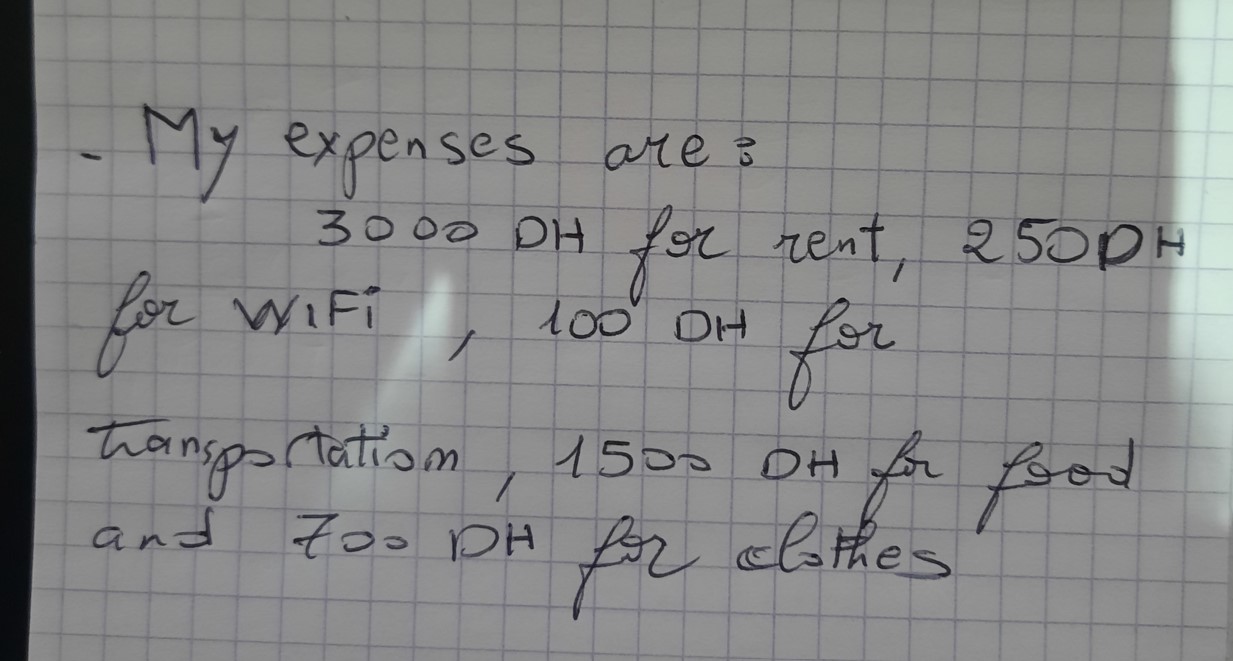 - My expenses are:
3000 DH for rent, 250DH
for WiFi , 100 DH for
transportation, 1500 DH for food
and 700 DH for clothes